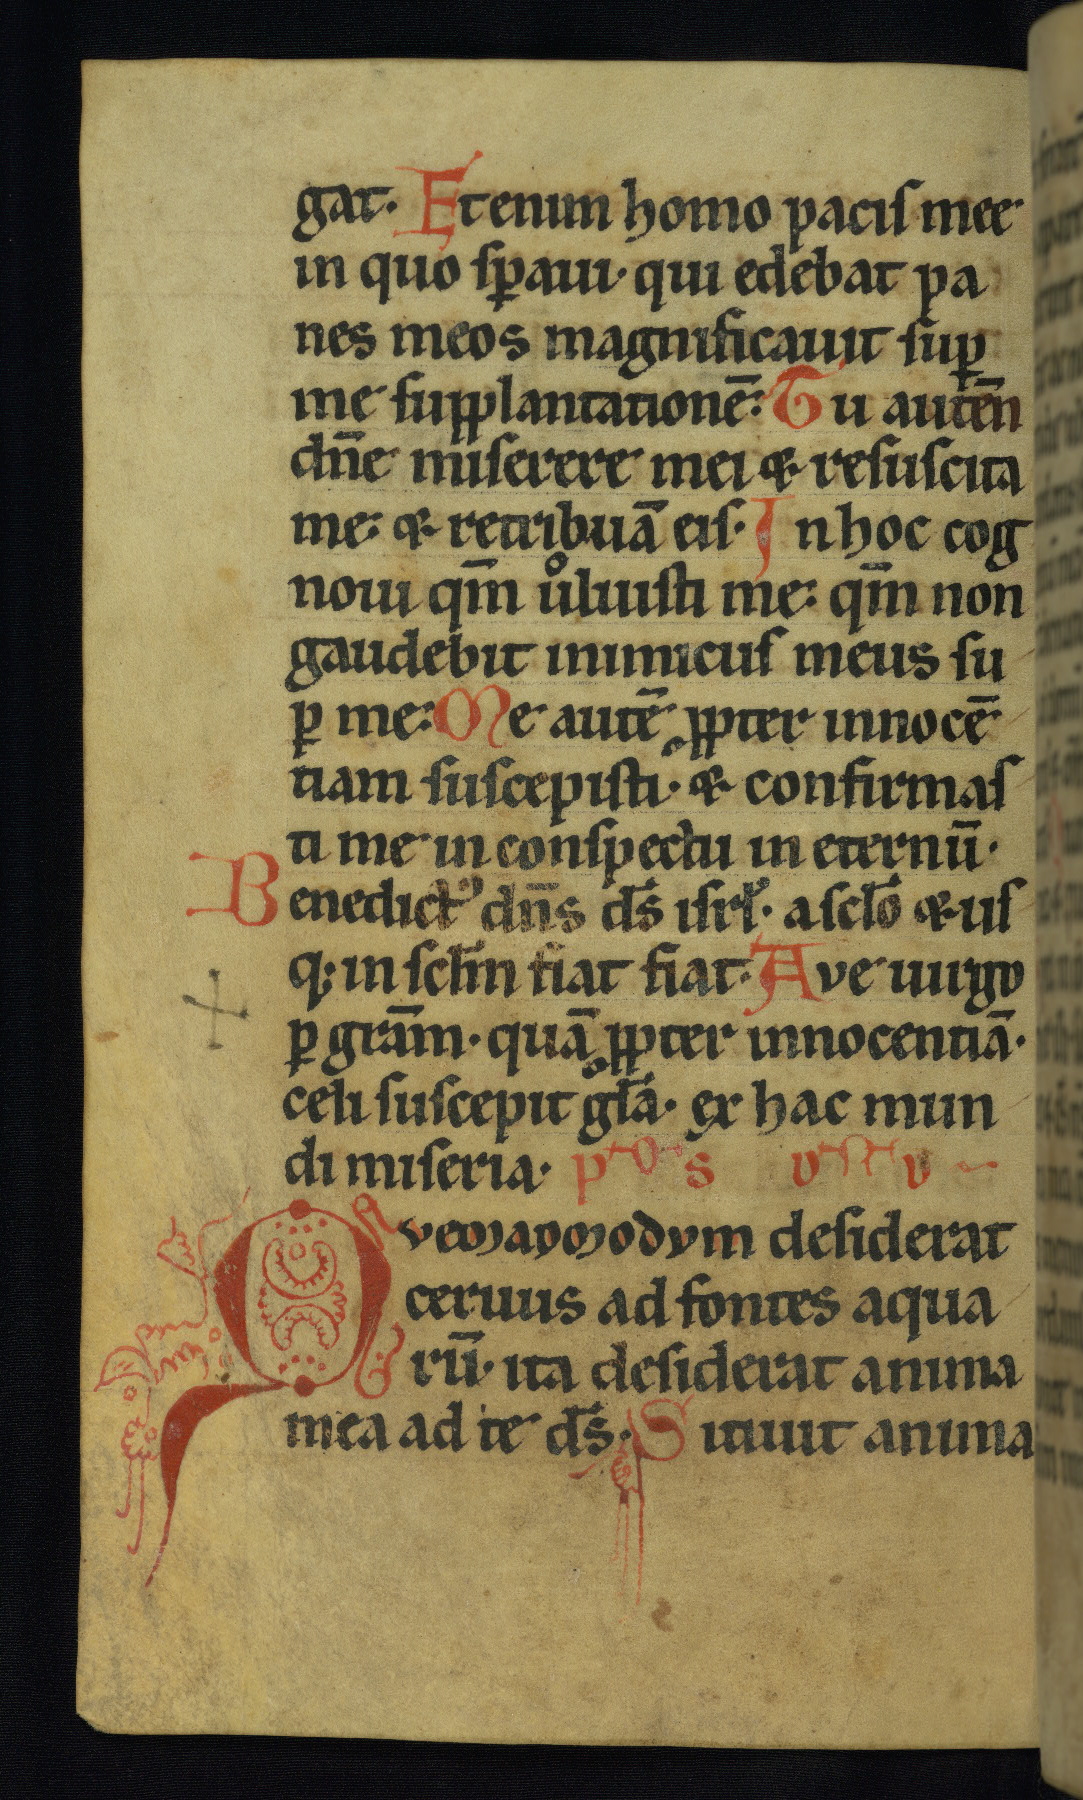 gat. Etenim homo pacis mee
in quo sp̄aui. qui edebat pa
nes meos magnificauit sup̄
me supplantationē: Tu autē̄n
dn̄e miserere mei & resuscita
me: & retribuā eis. In hoc cog
noui qm̄ uͦluisti me: qm̄ non
gaudebit inimicus meus su
p̄ me: Me autē ꝓpter innocē
tiam suscepisti. & confirmas
ti me in conspectu in eternū.
Benedictꝰ dn̄s ds̄ isrl̄. a sclō & us
q; in sclm̄ fiat fiat. Aue uirgo
p̄ grām. quā ꝓpter innocentiā.
celi suscepit gl̄a. ex hac mun
di miseria.
Quemadmodum desiderat
ceruus ad fontes aqua
rū. ita desiderat anima
mea ad te ds̄. Sitiuit anima